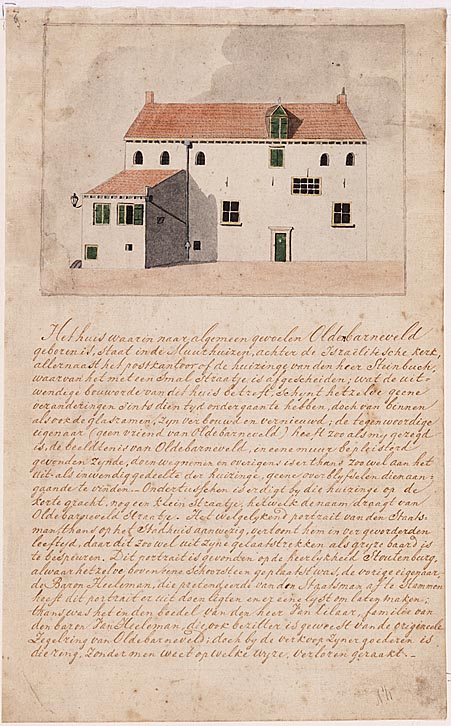 Het huis waarin naar algemeen gevoelen Oldenbarneveld
geboren is, staat in de Muurhuizen, achter de Israëlitische kerk,
allernaast het postkantoor of de huizinge van den heer Steinbuch,
waarvan het met een Smal Straatje is afgescheiden; wat de uit-
wendige bouworde van dit huis betreft, schynt hetzelve geene
veranderingen Sints dien tyd ondergaan te hebben, doch van binnen
als ook de glasramen, zyn verbouwd en vernieuwd; de tegenwoordige
eigenaar (geen vriend van Oldebarneveld) heeft zoo als my gezegd
is, de beeldtenis van Oldebarneveld, in eene muur bepleisterd
gevonden zynde, doen wegnemen en overigens is er thans zoo wel aan het
uit- als inwendig gedeelte der huizinge, geene overblyfselen dien aan-
gaande te vinden. — Ondertusschen is er digt by dit huizinge op de
korte gracht, nog een klein Straatje, hetwelk de naam draagt van
Oldebarneveld Straatje. — Het welgelykend portrait van den Staats-
man thans op het Stadhuis aanwezig, vertoont hem in ver gevorderden
leeftyd, daar dit zoo wel uit zyne gelaatstrekken als gryze baard is
te bespeuren. Dit portrait is gevonden op de heerlykheid Stoutenburg,
alwaar hetzelve boven eene schoorsteen geplaatst was, de vorige eigenaar,
de Baron Heeloman, die pretendeerde van den Staatsman af te Stammen
heeft dit portrait er uit doen ligten en er eene lyst om laten maken;
thans was het in den boedel van den heer Van
den baron Van Heeloman, die ook bezitter is geweest van de origineele
Zegelring van Oldebarneveld; doch by de verkoop zyner goederen is
die ring, zonder men weet op welke wyze, verloren geraakt. —